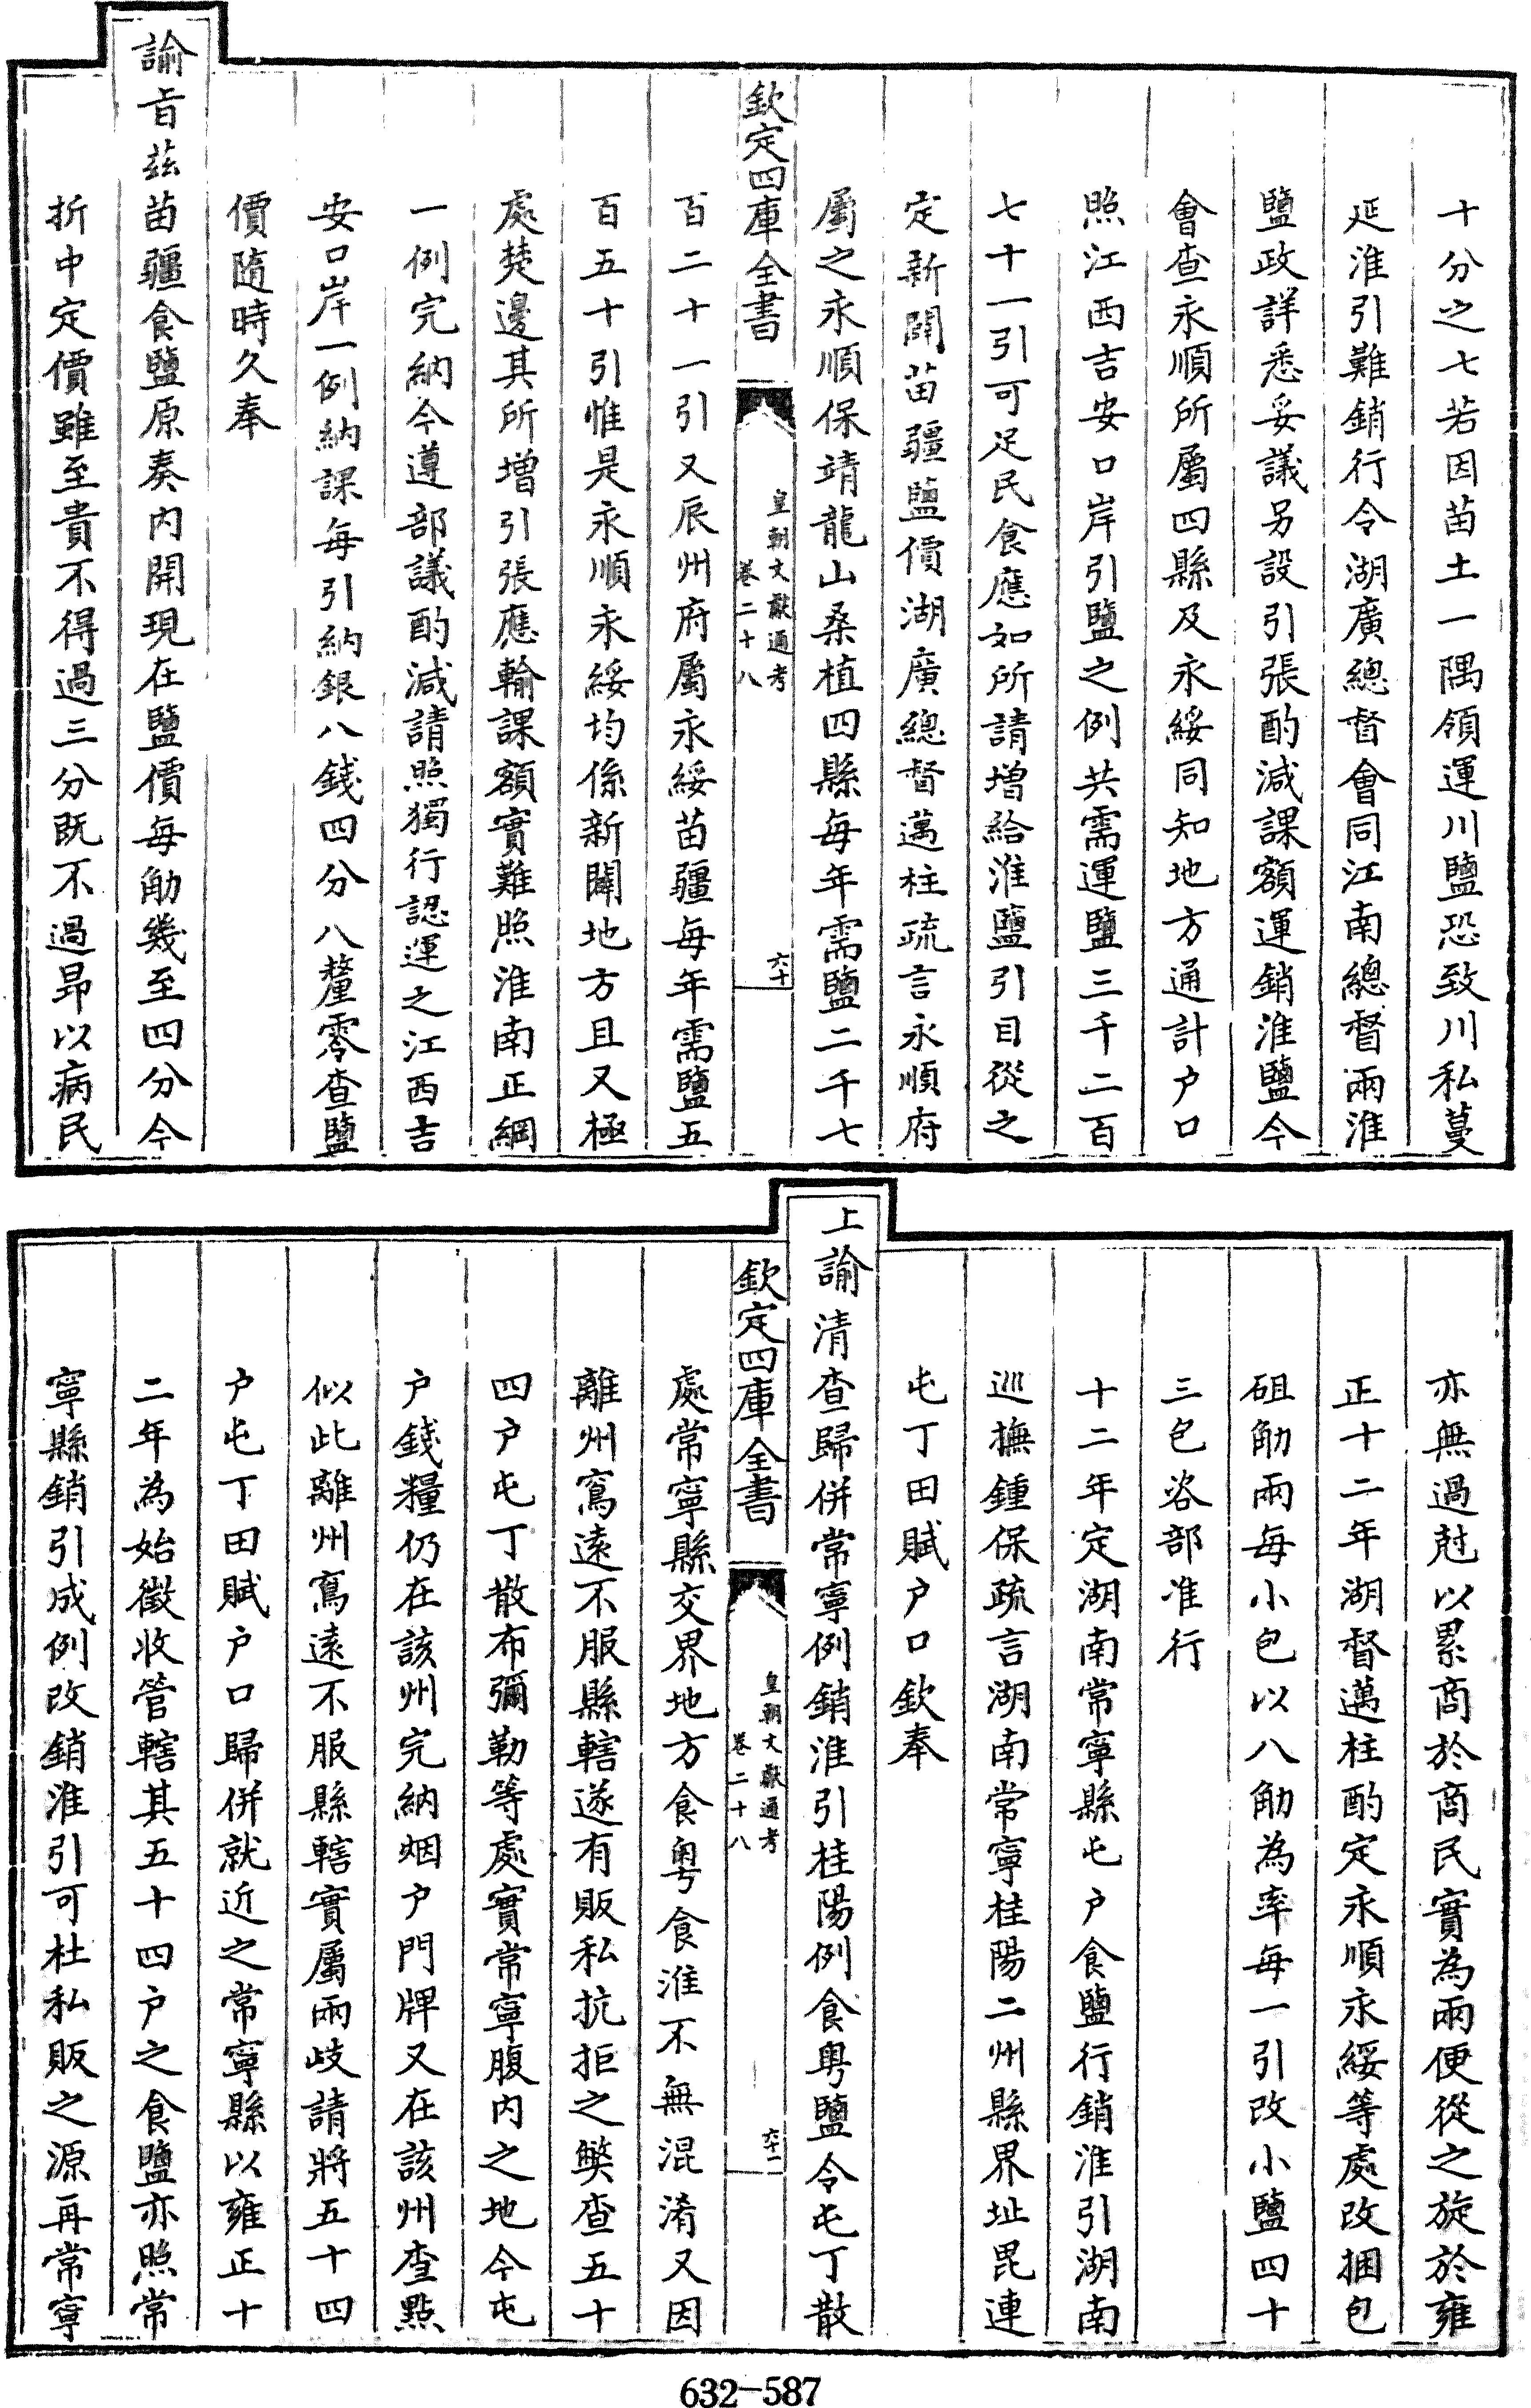 十分之七若因苗土一隅領運川鹽恐致川私蔓
延淮引難銷行令湖廣總督會同江南總督兩淮
鹽政詳悉妥議另設引張酌減課額運銷淮鹽今
會查永順所屬四縣及永綏同知地方通計户口
照江西吉安口岸引鹽之例共需運鹽三千二百
七十一引可足民食應如所請增給淮鹽引目從之
定新闢苗疆鹽價湖廣總督邁柱疏言永順府
屬之永順保靖龍山桑植四縣每年需鹽二千七
欽定四庫全書
皇朝文獻通考
卷二十八
六十
百二十一引又辰州府屬永綏苗疆每年需鹽五
百五十引惟是永順永綏均係新闢地方且又極
處焚邊其所增引張應輸課額實難照淮南正綱
一例完納今遵部議酌減請照獨行認運之江西吉
安口岸一例納課每引納銀八錢四分八釐零查鹽
價隨時久奉
諭旨茲苗疆食鹽原奏内開現在鹽價每觔幾至四分今
折中定價雖至貴不得過三分既不過昂以病民
亦無過尅以累商於商民實為兩便從之旋於雍
正十二年湖督邁柱酌定永順永綏等處改捆包
砠觔兩每小包以八觔為率每一引改小鹽四十
三包咨部准行
十二年定湖南常寧縣屯户食鹽行銷淮引湖南
巡撫鍾保疏言湖南常寧桂陽二州縣界址毘連
屯丁田賦户口欽奉
上諭清查歸併常寧例銷淮引桂陽例食粤鹽令屯丁散
欽定四庫全書
皇朝文獻通考
卷二十八
六十一
處常寧縣交界地方食粤食淮不無混淆又因
離州寫遠不服縣轄遂有販私抗拒之弊查五十
四户屯丁散布彌勒等處實常寧腹内之地今屯
户錢糧仍在該州完納烟户門牌又在該州查點
似此離州寫遠不服縣轄實屬兩歧請將五十四
户屯丁田賦户口歸併就近之常寧縣以雍正十
二年為始徵收管轄其五十四户之食鹽亦照常
寧縣銷引成例改銷淮引可杜私販之源再常寧
632-587